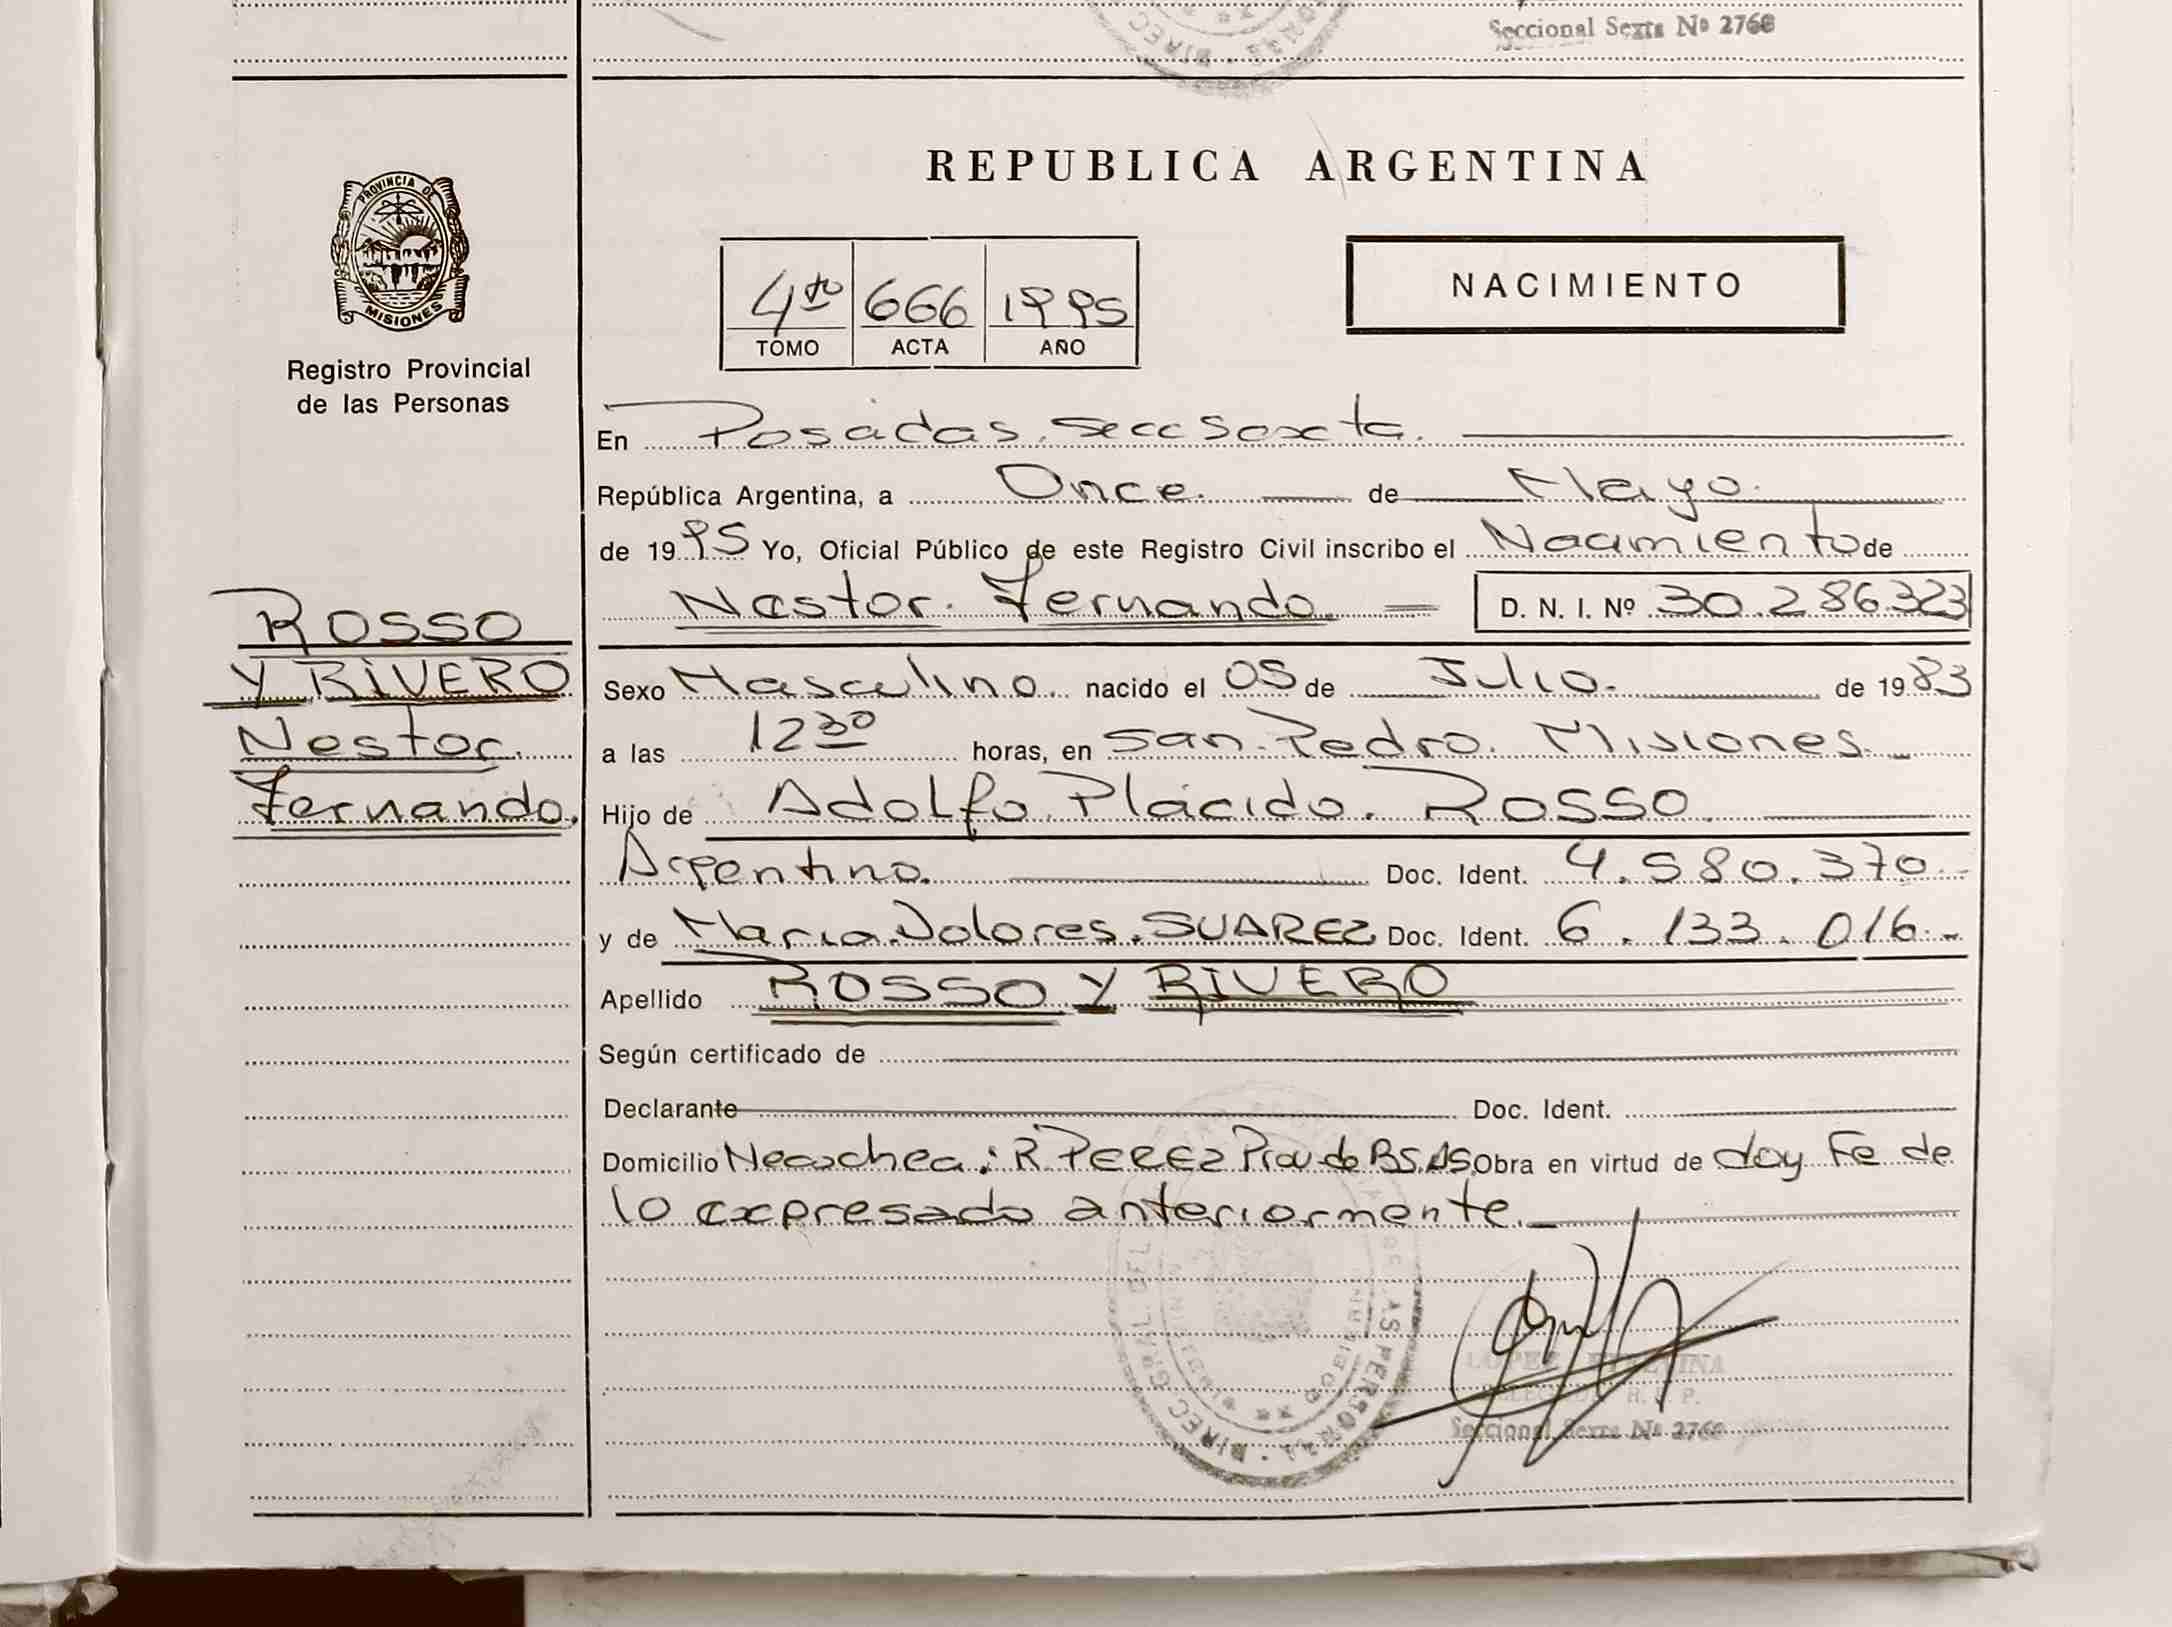 Seccional Sexta Nº 2768
PROVINCIA DE
MISIONES
Registro Provincial
de las Personas
REPUBLICA ARGENTINA
4to 666 1995
TOMO ACTA AÑO
NACIMIENTO
En Posadas. Secc Sexta.
República Argentina, a Once. de Mayo.
de 1995 Yo, Oficial Público de este Registro Civil inscribo el Nacimiento de
Nestor. Fernando. D. N. I. Nº 30.286323
ROSSO
Y RIVERO
Nestor.
Fernando.
Sexo Masculino. nacido el 05 de Julio. de 1983
a las 12 30 horas, en San. Pedro. Misiones.
Hijo de Adolfo. Plácido. Rosso.
Argentino. Doc. Ident. 4.580.370-
y de Maria. Dolores. SUAREZ Doc. Ident. 6.133.016.-
Apellido ROSSO Y RIVERO
Según certificado de
Declarante Doc. Ident.
Domicilio Necochea: R PEREZ Prov de BS.AS. Obra en virtud de doy Fe de
lo expresado anteriormente.
LOPEZ
Seccional Sexta Nº 2768
DIREC. GRAL. DEL
DE LAS PERSONAS